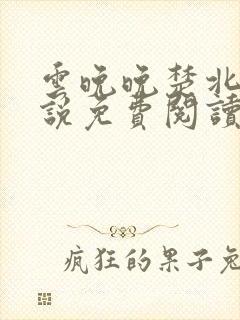 雲晚晚楚北
說免費閱讀
瘋狂的果子兔